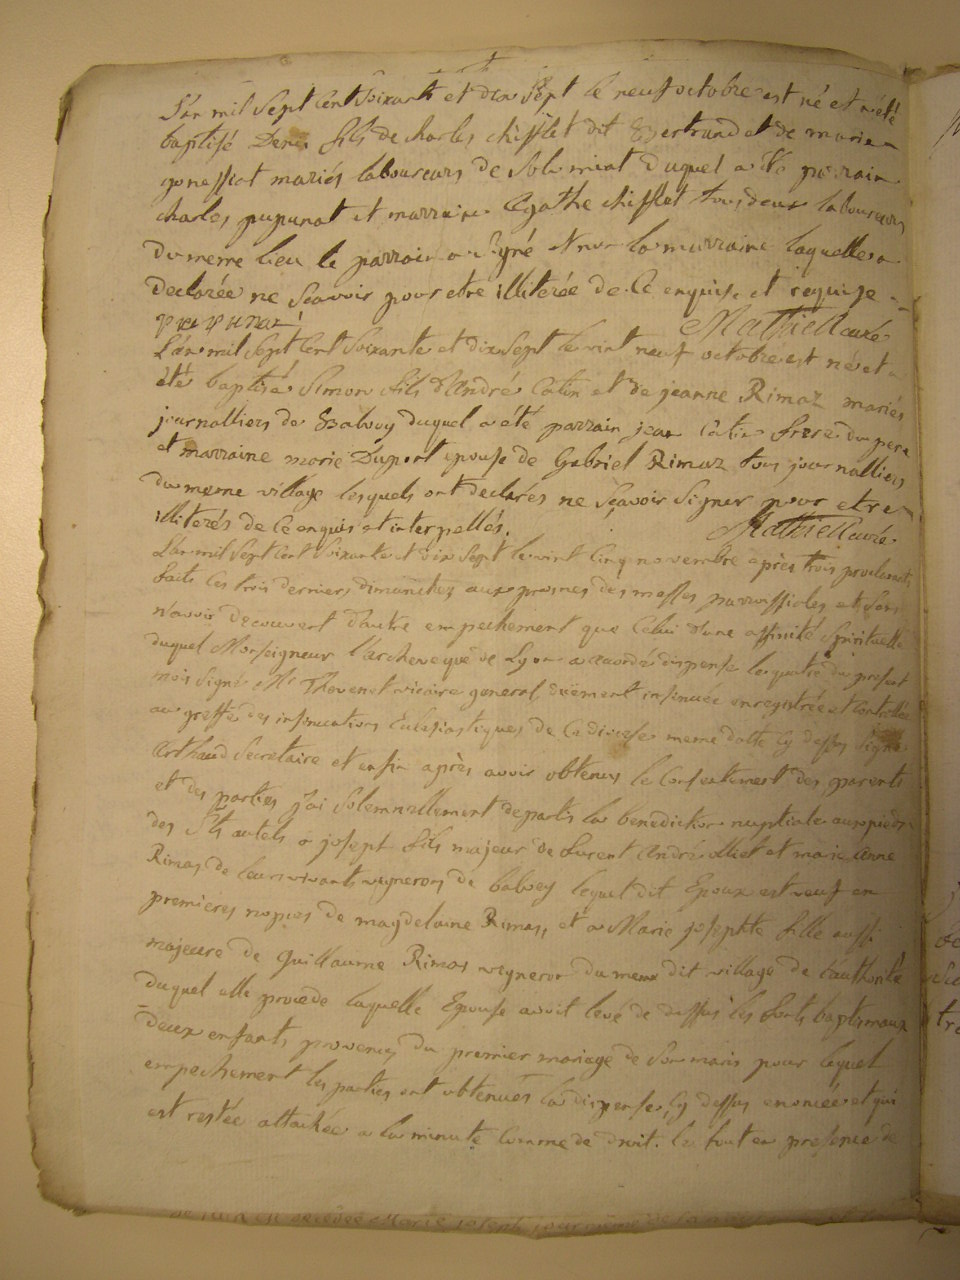 L'an mil sept cent soixante et dix sept le neuf octobre est né et a été
baptisé Denis fils de charles chifflet dit Bertrand et de marie
gonessiat mariés laboureurs de Solomiat duquel a été parrain
charles pupunat et marraine Agathe chifflet tous deux laboureurs
du meme lieu le parrain a signé et non la marraine laquelle a
declarée ne scavoir pour etre illiterée de ce enquise et requise
pupunat Mathieu curé
L'an mil sept cent soixante et dix sept le vint neuf octobre est né et a
été baptisé Simon fils d'André Catin et de jeanne Rimaz mariés
journalliers de Balvoy duquel a été parrain jean Catin frere du pere
et marraine marie Duport epouse de Gabriel Rimaz tous journalliers
du meme village lesquels ont declarés ne scavoir signer pour etre
illiterés de ce enquis et interpellés. Mathieu curé
L'an mil sept cent soixante et dix sept le vint cinq novembre après trois proclamats
faits les trois derniers dimanches aux prosnes des messes parroissiales et sans
n'avoir decouvert d'autre empechement que celui d'une affinité spirituelle
duquel Monseigneur l'archeveque de Lyon a accordé dispense le quatre du present
mois signé Mr Thevenet vicaire general duëment insinuée enregistrée et controllée
au greffe des insinuations Eclesiastiques de ce diocese meme datte cy dessus signé
Arthaud Secretaire et enfin après avoir obtenus le consentement des parents
et des parties j'ai solemnellement departis la benediction nuptiale aux pieds
des Sts autels a joseph fils majeur de Lurent André olliet et marie Anne
Rimas de leurs vivants vignerons de balvoy lequel dit Epoux est veuf en
premieres nopces de magdelaine Rimas, et a Marie josephte fille aussi
majeure de Guillaume Rimas vigneron du meme dit village de l'authorité
duquel elle procede laquelle Epouse avoit levé de dessus les fonts baptismaux
deux enfants provenus du premier mariage de son maris pour lequel
empechement les parties ont obtenues la dispense cy dessus enoncée et qui
est restée attachée a la minute comme de droit. le tout en presence de